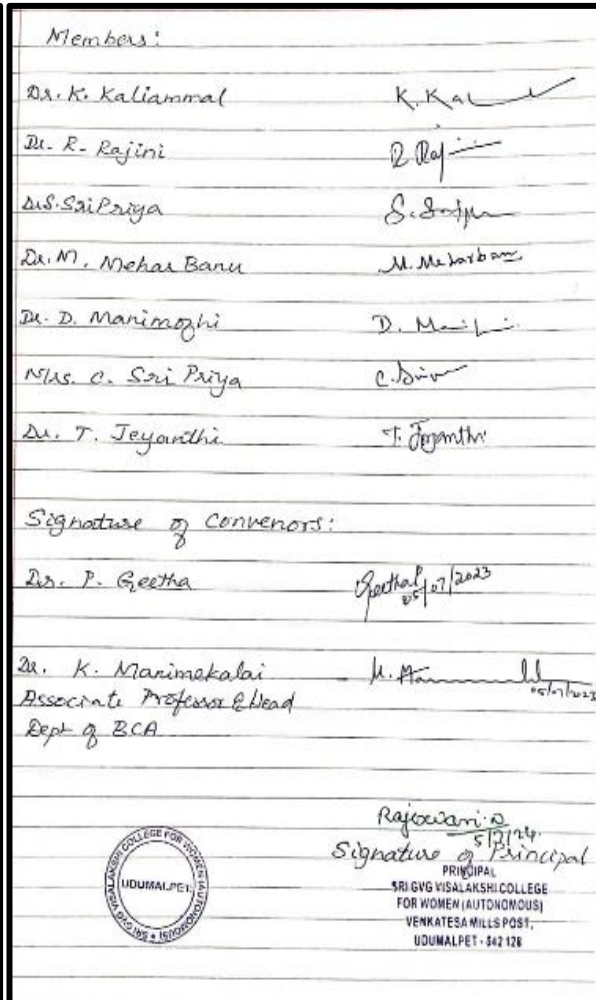 Members:
Dr. K. Kaliammal K. Kal
Dr. R. Rajini R. Raj
Dr. S. SriPriya
Dr. M. Mehar Banu M. Meharbanu
Dr. D. Manimozhi D. Mani
Mrs. C. Sri Priya
Dr. T. Jeyanthi T. Jeyanthi
Signature of Convenors:
Dr. P. Geetha Geetha P 05/07/2023
Dr. K. Manimekalai 05/07/2023
Associate Professor & Head
Dept of BCA
Rajeswari. N
5/7/24.
Signature of Principal
PRINCIPAL
SRI GVG VISALAKSHI COLLEGE
FOR WOMEN (AUTONOMOUS)
VENKATESA MILLS POST,
UDUMALPET - 642 128
SRI GVG VISALAKSHI COLLEGE FOR WOMEN (AUTONOMOUS)
UDUMALPET